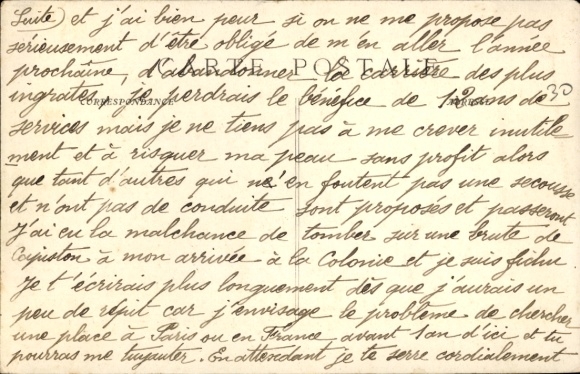 (Suite) et j'ai bien peur si on ne me propose pas
sérieusement d'être obligé de m'en aller l'année
CARTE POSTALE
prochaine, d'abandonner la carrière des plus
ingrates. Je perdrais le bénéfice de 12 ans de
30
CORRESPONDANCE
ADRESSE
services mais je ne tiens pas à me crever inutile
ment et à risquer ma peau sans profit alors
que tant d'autres qui n'en foutent pas une secousse
et n'ont pas de conduite sont proposés et passeront
J'ai eu la malchance de tomber sur une brute de
Capiston à mon arrivée à la Colonie et je suis fichu
Je t'écrirais plus longuement dès que j'aurais un
peu de répit car j'envisage le problème de chercher
une place à Paris ou en France avant 1 an d'ici et tu
pourras me tuyauter. En attendant je te serre cordialement